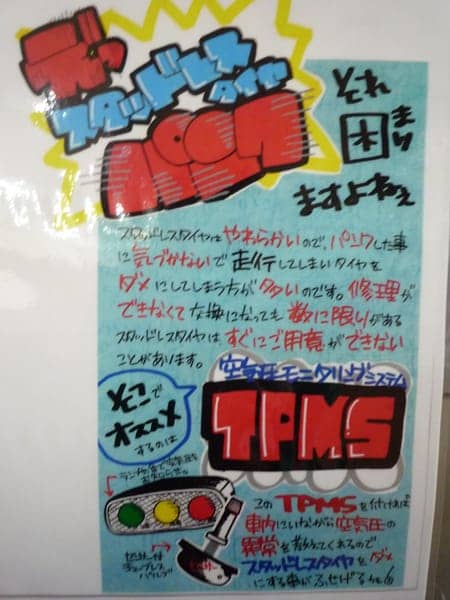 スタッドレス
タイヤ
パンク
それ
困まり
ますよねぇ
スタッドレスタイヤはやわらかいので、パンクした事
に気づかないで走行してしまいタイヤを
ダメにしてしまう方が多いのです。修理が
できなくて交換になっても数に限りがある
スタッドレスタイヤは、すぐにご用意ができない
ことがあります。
そこで
オススメ
するのは
空気圧モニタリングシステム
TPMS
ランプの色で空気圧を
お知らせ。
センサー付
チューブレス
バルブ
センサー
このTPMSを付ければ
車内にいながら空気圧の
異常を教えてくれるので
スタッドレスタイヤをダメ
にする事がふせげるかも